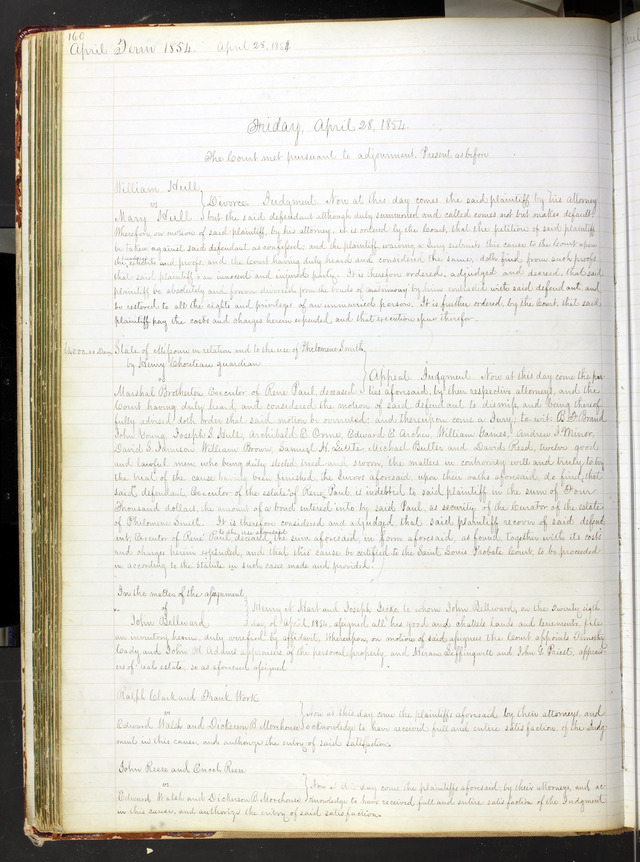 160
April Term 1854. April 28, 1854
Friday, April 28, 1854.
The Court met pursuant to adjournment. Present as before.
William Hull,
vs } Divorce. Judgment. Now at this day comes the said plaintiff by his Attorney
Mary Hull but the said defendant although duly summoned and called comes not but makes default.
Wherefore, on motion of said plaintiff, by his attorney, it is ordered by the Court, that the petition of said plaintiff
be taken against said defendant as confessed; and the plaintiff, waiving a Jury submits this cause to the Court upon
the and proofs, and the Court having duly heard and considered the same, doth find, from such proofs
that said plaintiff is an innocent and injured party. It is therefore ordered, adjudged and decreed, that said
plaintiff be absolutely and forever divorced from the bonds of matrimony by him contracted with said defendant, and
be restored to all the rights and privileges of an unmarried person. It is further ordered, by the Court, that said
plaintiff pay the costs and charges herein expended, and that execution issue therefor.
State of Missouri in relation and to the use of Philomene Smith
by Henry Chouteau guardian
vs } Appeal Judgment Now at this day come the par-
Marshal Brotherton Executor of Rene Paul, deceased ties aforesaid, by their respective attorneys, and the
Court having duly heard and considered the motion of said defendant to dismiss, and being thereof
fully advised doth order that said motion be overruled; and thereupon come a Jury, to wit:
John Young, Joseph S. Hull, Archibald E. Orme, Edward E. Archer, William Barnes, Andrew J. Minor,
David S. Jamison William Brown, Samuel H. Little, Michael Butler and David Reed, twelve good
and lawful men who being duly elected, tried and sworn, the matter in controversy well and truly to try,
the trial of the cause having been finished, the Jurors aforesaid, upon their oaths aforesaid, do find, that
said defendant, Executor of the estate of Rene Paul is indebted to said plaintiff in the sum of Four
Thousand dollars, the amount of a bond entered into by said Paul, as security of the Curator of the estate
of Philomene Smith. It is therefore considered and adjudged that said plaintiff recover of said defend-
ant Executor of Rene Paul, deceased, the sum aforesaid, in form aforesaid, as found, together with its costs
to the use aforesaid
and charges herein expended, and that this cause be certified to the Saint Louis Probate Court, to be proceeded
in according to the statute in such cases made and provided.
In the matter of the assignment,
of } Henry N. Hart and Joseph to whom John Bellward, on the twenty sixth
John Bellward day of April, 1854, assigned all his good and chattels lands and tenements, file
an inventory herein, duly verified by affidavit. Whereupon, on motion of said assignees the Court appoints Timothy
Cady and John H. Addens appraisers of the personal property, and Hiram Leffingwell and John G. Priest, apprais-
ers of real estate, so as aforesaid assigned
Ralph Clark and Frank Work
vs } Now at this day come the plaintiffs aforesaid by their attorneys, and
Edward Walsh and Dickerson B. Morehouse acknowledge to have received full and entire satisfaction of the Judg-
ment in this cause, and authorize the entry of said satisfaction.
John Reere and Enoch Reere
vs } Now at this day come the plaintiffs aforesaid by their attorneys, and ac-
Edward Walsh and Dickerson B. Morehouse knowledge to have received full and entire satisfaction of the Judgment
in this cause, and authorize the entry of said satisfaction.